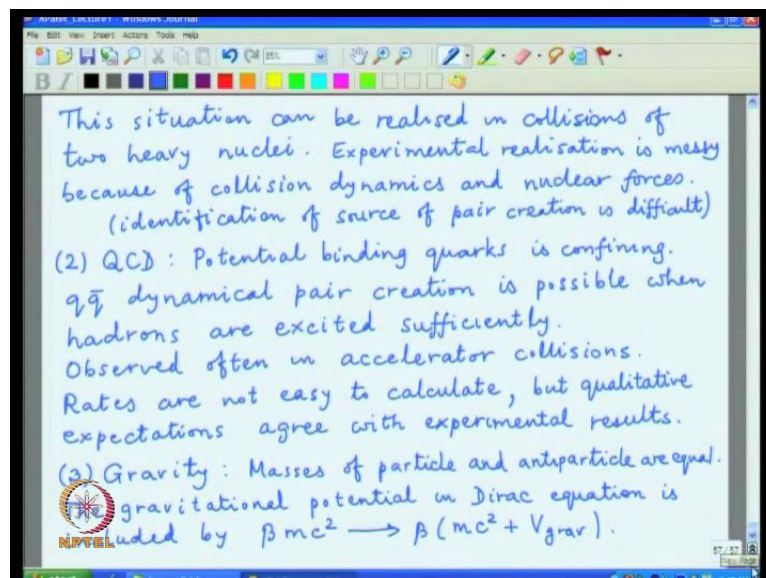 APatel_Lecture1 - Windows Journal
File Edit View Insert Actions Tools Help
85%
B I
This situation can be realised in collisions of
two heavy nuclei. Experimental realisation is messy
because of collision dynamics and nuclear forces.
(identification of source of pair creation is difficult)
(2) QCD : Potential binding quarks is confining.
qq̄ dynamical pair creation is possible when
hadrons are excited sufficiently.
Observed often in accelerator collisions.
Rates are not easy to calculate, but qualitative
expectations agree with experimental results.
(3) Gravity : Masses of particle and antiparticle are equal.
gravitational potential in Dirac equation is
by βmc² → β(mc² + Vgrav).
NPTEL
57 / 57
New Page